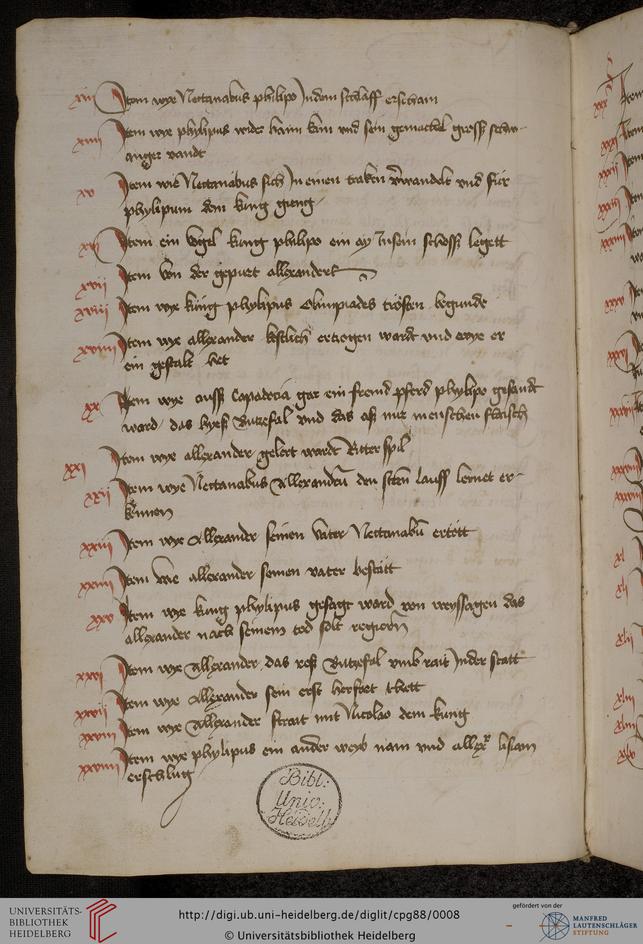 xiii Item wye Nectanabus philipo Indem schlaff erscham
xiiii Item wye phylipus wider haim kam vnd sein gemachel gross schw-
anger vandt
xv Item wie Nectanabus sich In einen traken verwandelt vnd für
phylipum den kung gieng
xvi Item ein vogel kung philipo ein ay In sein schoss legett
xvii Item von der gepuet allexanders
xviii Item wye kunig phylipus Olimpiades trösten begunde
xviiii Item wye allexander kostlich erczogen wardt vnd wye er
ein gestalt het
xx Item wye auss Capadocia gar ein fremd pferd phylipo gesandt
ward das hyess Butzefal vnd das ass nur menschen flaisch
xxi Item wye allexander gelert wardt Ritter spil
xxii Item wye Nectanabus Allexandrum den stern lauff lernet er-
kennen
xxiii Item wye Allexander seinen vater Nectanabum ertött
xxiiii Item wie allexander seinen vater bestätt
xxv Item wye kung phylipus gesagt ward von weyssagen das
allexander nach seinem tod solt regiern
xxvi Item wye Allexander das ross Butzefal vmb rait In der statt
xxvii Item wye Allexander sein erst herfart thett
xxviii Item wye Allexander strait mit Nicolao dem kung
xxviiii Item wye phylipus ein ander weyb nam vnd allexander lisiam
erschlug
Bibl:
Univ:
Heidelb.
UNIVERSITÄTS-
BIBLIOTHEK
HEIDELBERG
http://digi.ub.uni-heidelberg.de/diglit/cpg88/0008
© Universitätsbibliothek Heidelberg
gefördert von der
MANFRED
LAUTENSCHLÄGER
STIFTUNG